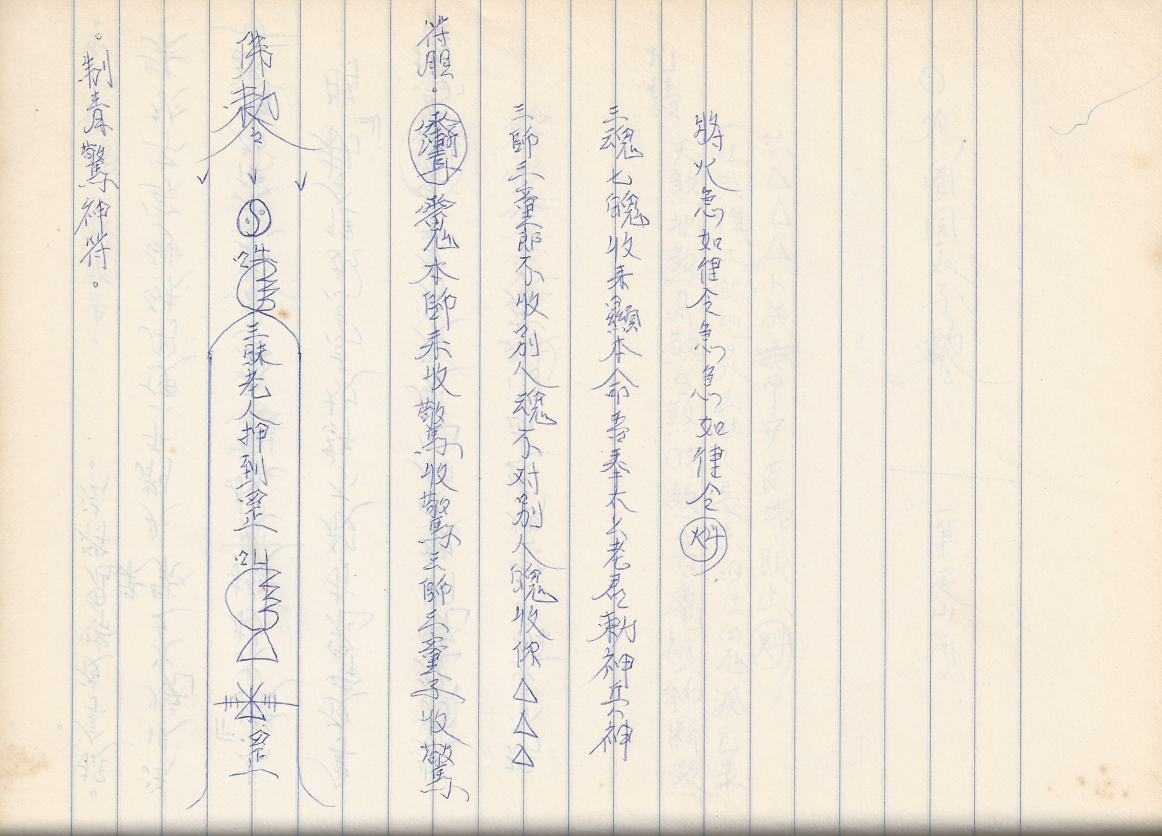 。制春驚神符。
佛勅令
三昧老人押到罡
罡
符胆。本師來收驚收驚三師三童子收驚
三師三童郎不收別人魂不对別人魄收保△△△
三魂七魄收來顯本命吾奉太上老君勅神兵神
將火急如律令急急如律令